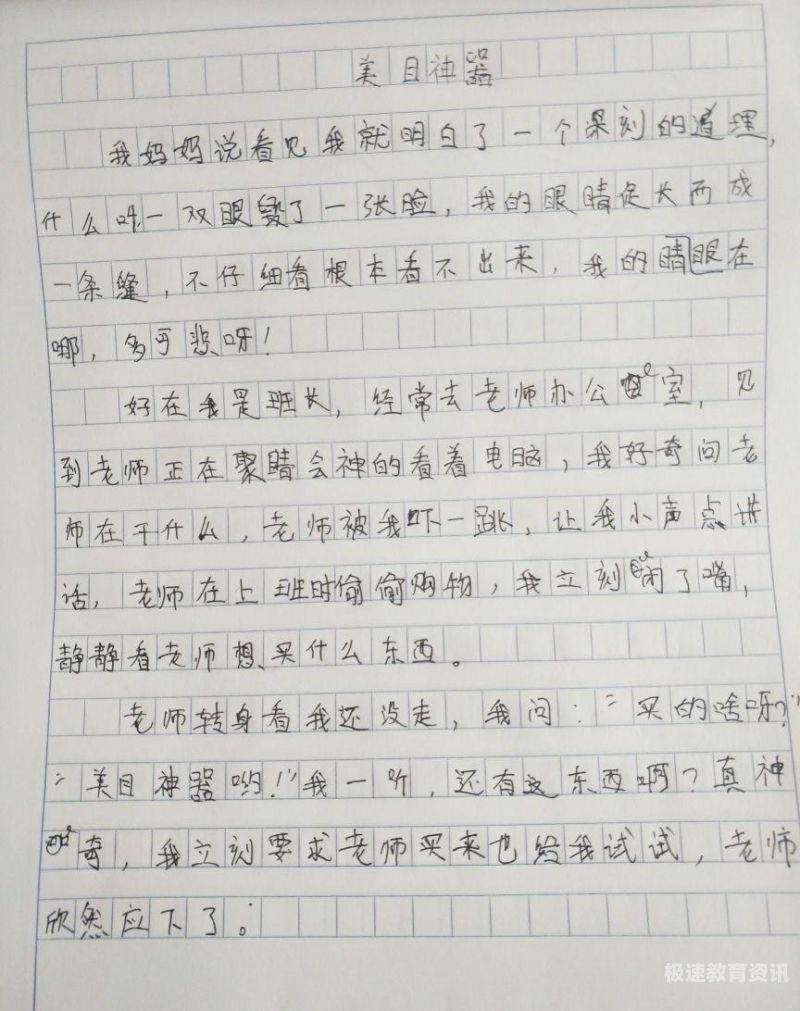 美目神器
我妈妈说看见我就明白了一个深刻的道理,
什么叫一双眼毁了一张脸,我的眼睛促长而成
一条缝,不仔细看根本看不出来,我的睛眼在
哪,多可悲呀!
好在我是班长,经常去老师办公室,见
到老师正在聚睛会神的看着电脑,我好奇问老
师在干什么,老师被我吓一跳,让我小声点讲
话,老师在上班时偷偷购物,我立刻闭了嘴,
静静看老师想买什么东西。
老师转身看我还没走,我问:“买的啥呀?”
“美目神器哟!”我一听,还有这东西啊?真神
奇,我立刻要求老师买来也给我试试,老师
欣然应下了。
极速教育资讯